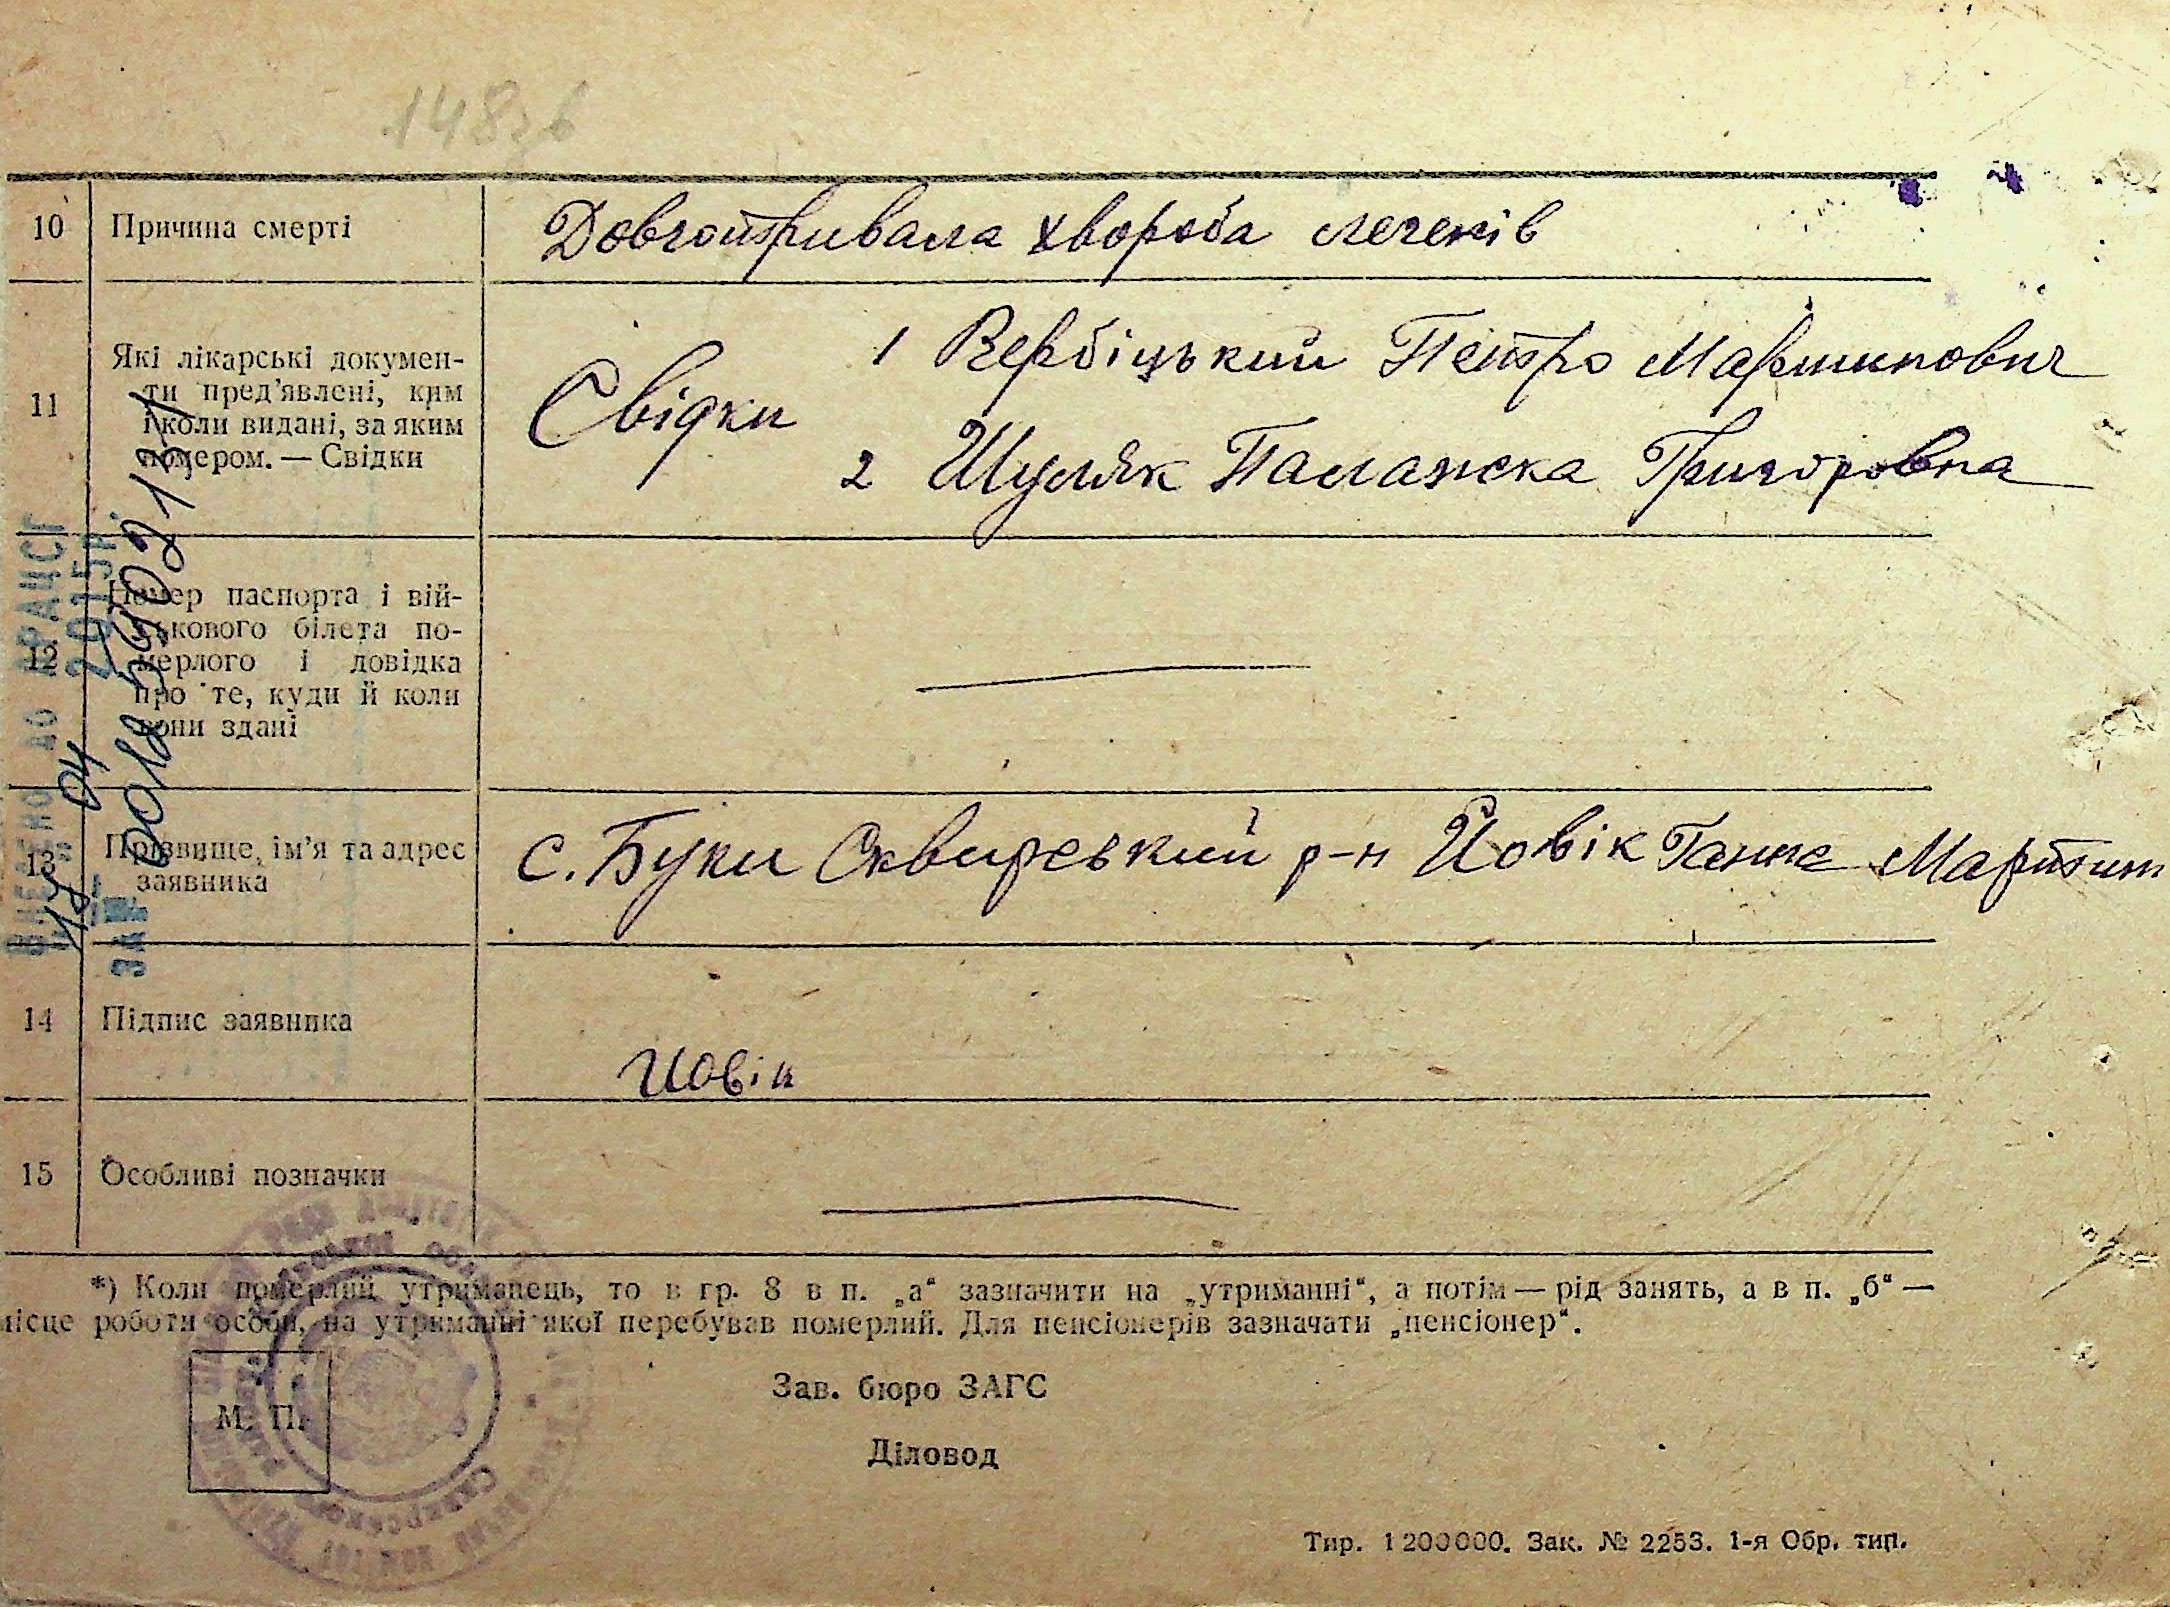 148зв
10 Причина смерті Довготривала хвороба легенів
11 Які лікарські докумен-
ти пред'явлені, ким
і коли видані, за яким
номером. — Свідки
Свідки 1 Вербіцький Петро Мартинович
2 Шуляк Палажка Григоровна
12 Номер паспорта і вій-
ськового білета по-
мерлого і довідка
про те, куди й коли
вони здані
13 Прізвище, ім'я та адрес
заявника
с. Буки Сквирський р-н Йовік Ганна Мартин
14 Підпис заявника
Йовік
15 Особливі позначки
ВНЕСЕНО ДО ДРАЦСГ
18 04 2015р
*) Коли померлий утриманець, то в гр. 8 в п. „а" зазначити на „утриманні", а потім — рід занять, а в п. „б" —
місце роботи особи, на утриманні якої перебував померлий. Для пенсіонерів зазначати „пенсіонер".
М. П.
Зав. бюро ЗАГС
Діловод
Тир. 1200000. Зак. № 2253. 1-я Обр. тип.